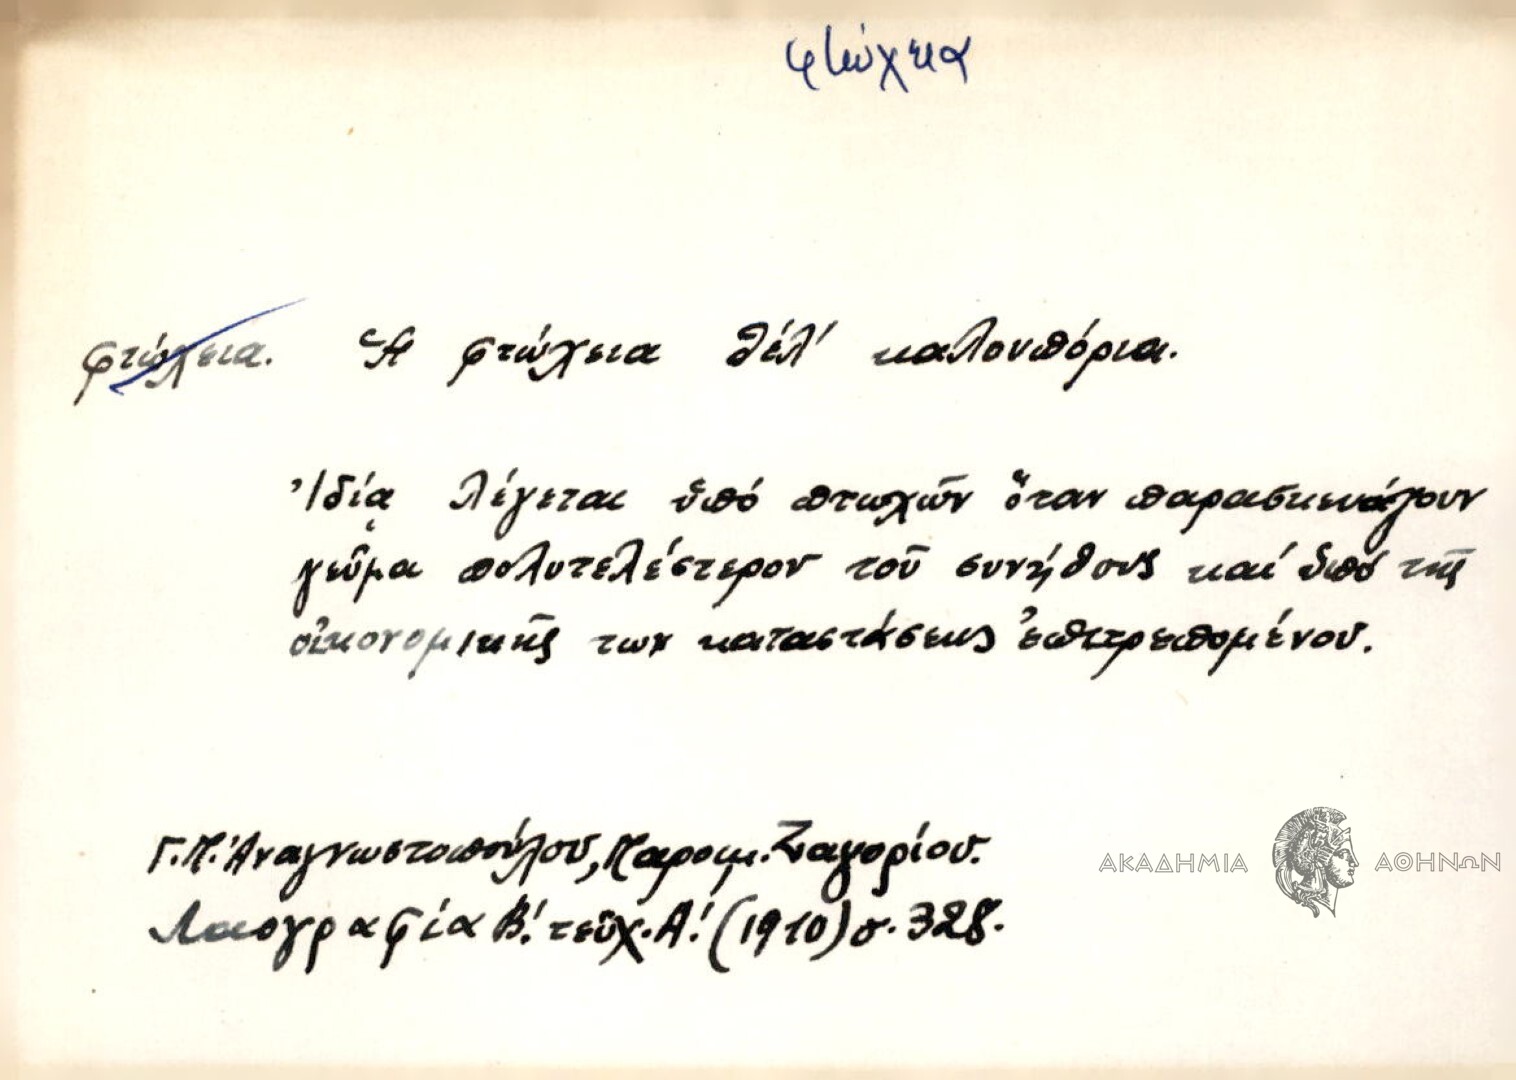 φτώχεια
φτώχεια. Ἡ φτώχεια θέλ' καλουπόρια.
Ἰδίᾳ λέγεται ὑπό πτωχῶν ὅταν παρασκευάζουν
γεῦμα πολυτελέστερον τοῦ συνήθους καί ὑπό τῆς
οἰκονομικῆς των καταστάσεως ἐπιτρεπομένου.
Γ.Π. Ἀναγνωστοπούλου, Παροιμ. Ζαγορίου.
Λαογραφία Β! τεῦχ. Α! (1910) σ. 328.
ΑΚΑΔΗΜΙΑ ΑΘΗΝΩΝ